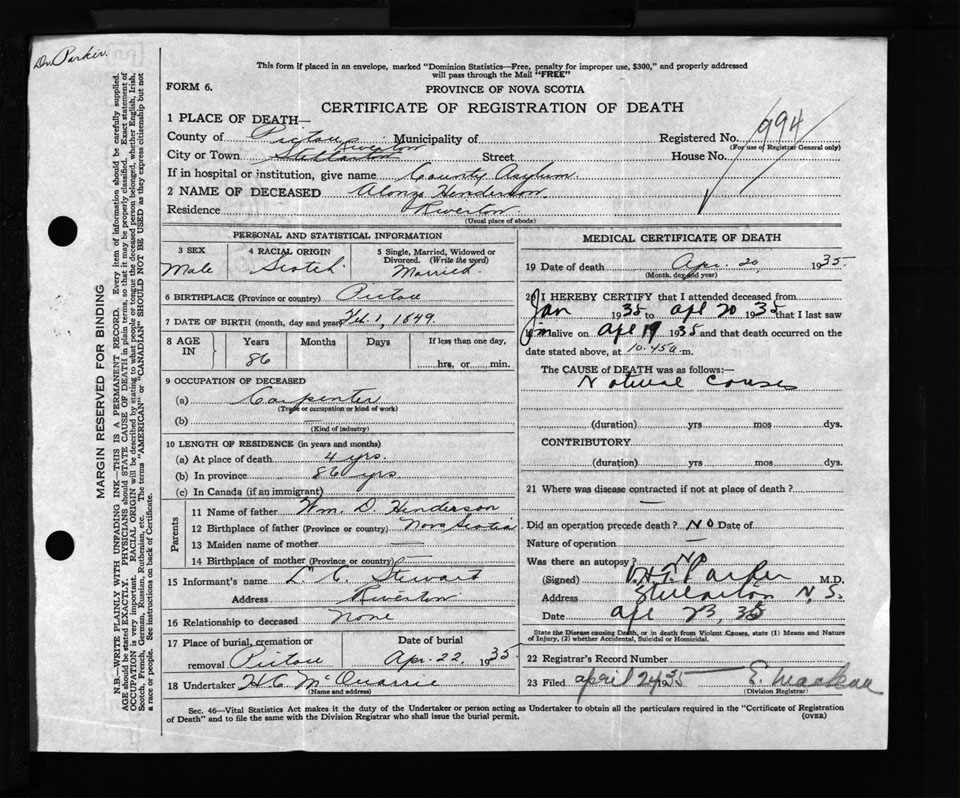 Dr. Parker.
This form if placed in an envelope, marked "Dominion Statistics—Free, penalty for improper use, $300," and properly addressed
will pass through the Mail "FREE"
FORM 6.
PROVINCE OF NOVA SCOTIA
CERTIFICATE OF REGISTRATION OF DEATH
1 PLACE OF DEATH—
County of Pictou Municipality of Registered No. 994
Riverton (For use of Registrar General only)
City or Town Stellarton Street House No.
If in hospital or institution, give name County Asylum.
2 NAME OF DECEASED Alonzo Henderson.
Residence Riverton.
(Usual place of abode)
PERSONAL AND STATISTICAL INFORMATION
3 SEX 4 RACIAL ORIGIN 5 Single, Married, Widowed or
Divorced. (Write the word)
Male Scotch Married
6 BIRTHPLACE (Province or country) Pictou
7 DATE OF BIRTH (month, day and year) Feb. 1, 1849.
8 AGE IN Years Months Days If less than one day,
86 hrs, or min.
9 OCCUPATION OF DECEASED
(a) Carpenter
(Trade or occupation or kind of work)
(b) —
(Kind of industry)
10 LENGTH OF RESIDENCE (in years and months)
(a) At place of death 4 yrs.
(b) In province 86 yrs
(c) In Canada (if an immigrant)
Parents
11 Name of father Wm. D. Henderson
12 Birthplace of father (Province or country) Nova Scotia
13 Maiden name of mother —
14 Birthplace of mother (Province or country) —
15 Informant's name L C. Stewart
Address Riverton
16 Relationship to deceased None
17 Place of burial, cremation or Date of burial
removal Pictou Apr. 22, 1935
18 Undertaker H C McQuarrie
(Name and address)
MEDICAL CERTIFICATE OF DEATH
19 Date of death Apr. 20, 1935.
(Month, day and year)
20 I HEREBY CERTIFY that I attended deceased from
Jan 1935 to Apl 20 1935 that I last saw
him alive on Apl 19 1935 and that death occurred on the
date stated above, at 10.45 a m.
The CAUSE of DEATH was as follows:—
Natural Causes
(duration) yrs mos dys.
CONTRIBUTORY
(duration) yrs mos dys.
21 Where was disease contracted if not at place of death?
—
Did an operation precede death? No Date of
Nature of operation —
Was there an autopsy? No
(Signed) Parker M.D.
Address Stellarton N.S.
Date Apl 23, 35
State the Disease causing Death, or in death from Violent Causes, state (1) Means and Nature
of Injury, (2) whether Accidental, Suicidal or Homicidal.
22 Registrar's Record Number
23 Filed April 24 1935 E. MacLean
(Division Registrar)
Sec. 46—Vital Statistics Act makes it the duty of the Undertaker or person acting as Undertaker to obtain all the particulars required in the "Certificate of Registration
of Death" and to file the same with the Division Registrar who shall issue the burial permit. (OVER)
MARGIN RESERVED FOR BINDING
N.B—WRITE PLAINLY WITH UNFADING INK—THIS IS A PERMANENT RECORD. Every item of information should be carefully supplied.
AGE should be stated EXACTLY. PHYSICIANS should STATE CAUSE OF DEATH in plain terms, so that it may be properly classified. Exact statement of
OCCUPATION is very important. RACIAL ORIGIN will be described by stating to what people or tongue the deceased person belonged, whether English, Irish,
Scotch, French, German, Russian, Ruthenian, etc. The terms "AMERICAN" or "CANADIAN" SHOULD NOT BE USED as they express citizenship but not
a race or people. See instructions on back of Certificate.